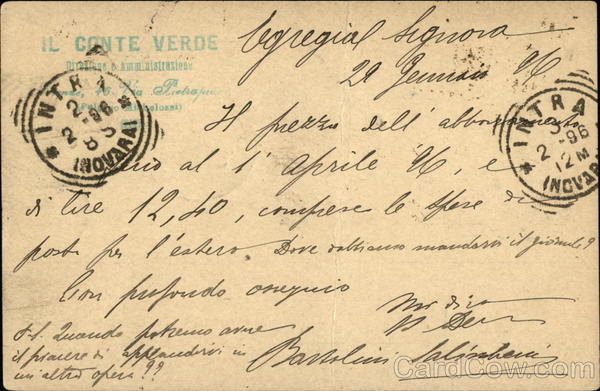 IL CONTE VERDE
Direzione & Amministrazione
Egregia Signora
29 Gennaio 96
Il prezzo dell'abbonamento
al 1° Aprile 96, è
di lire 12,40, comprese le spese di
posta per l'estero. Dove dobbiamo mandarvi il giornale?
Con profondo ossequio
P.S. Quando potremo avere
il piacere di applaudirvi in
un'altra opera??
Bartolini
INTRA
2-96
8 S
(NOVARA)
INTRA
2-96
12 M
(NOVARA)
CardCow.com